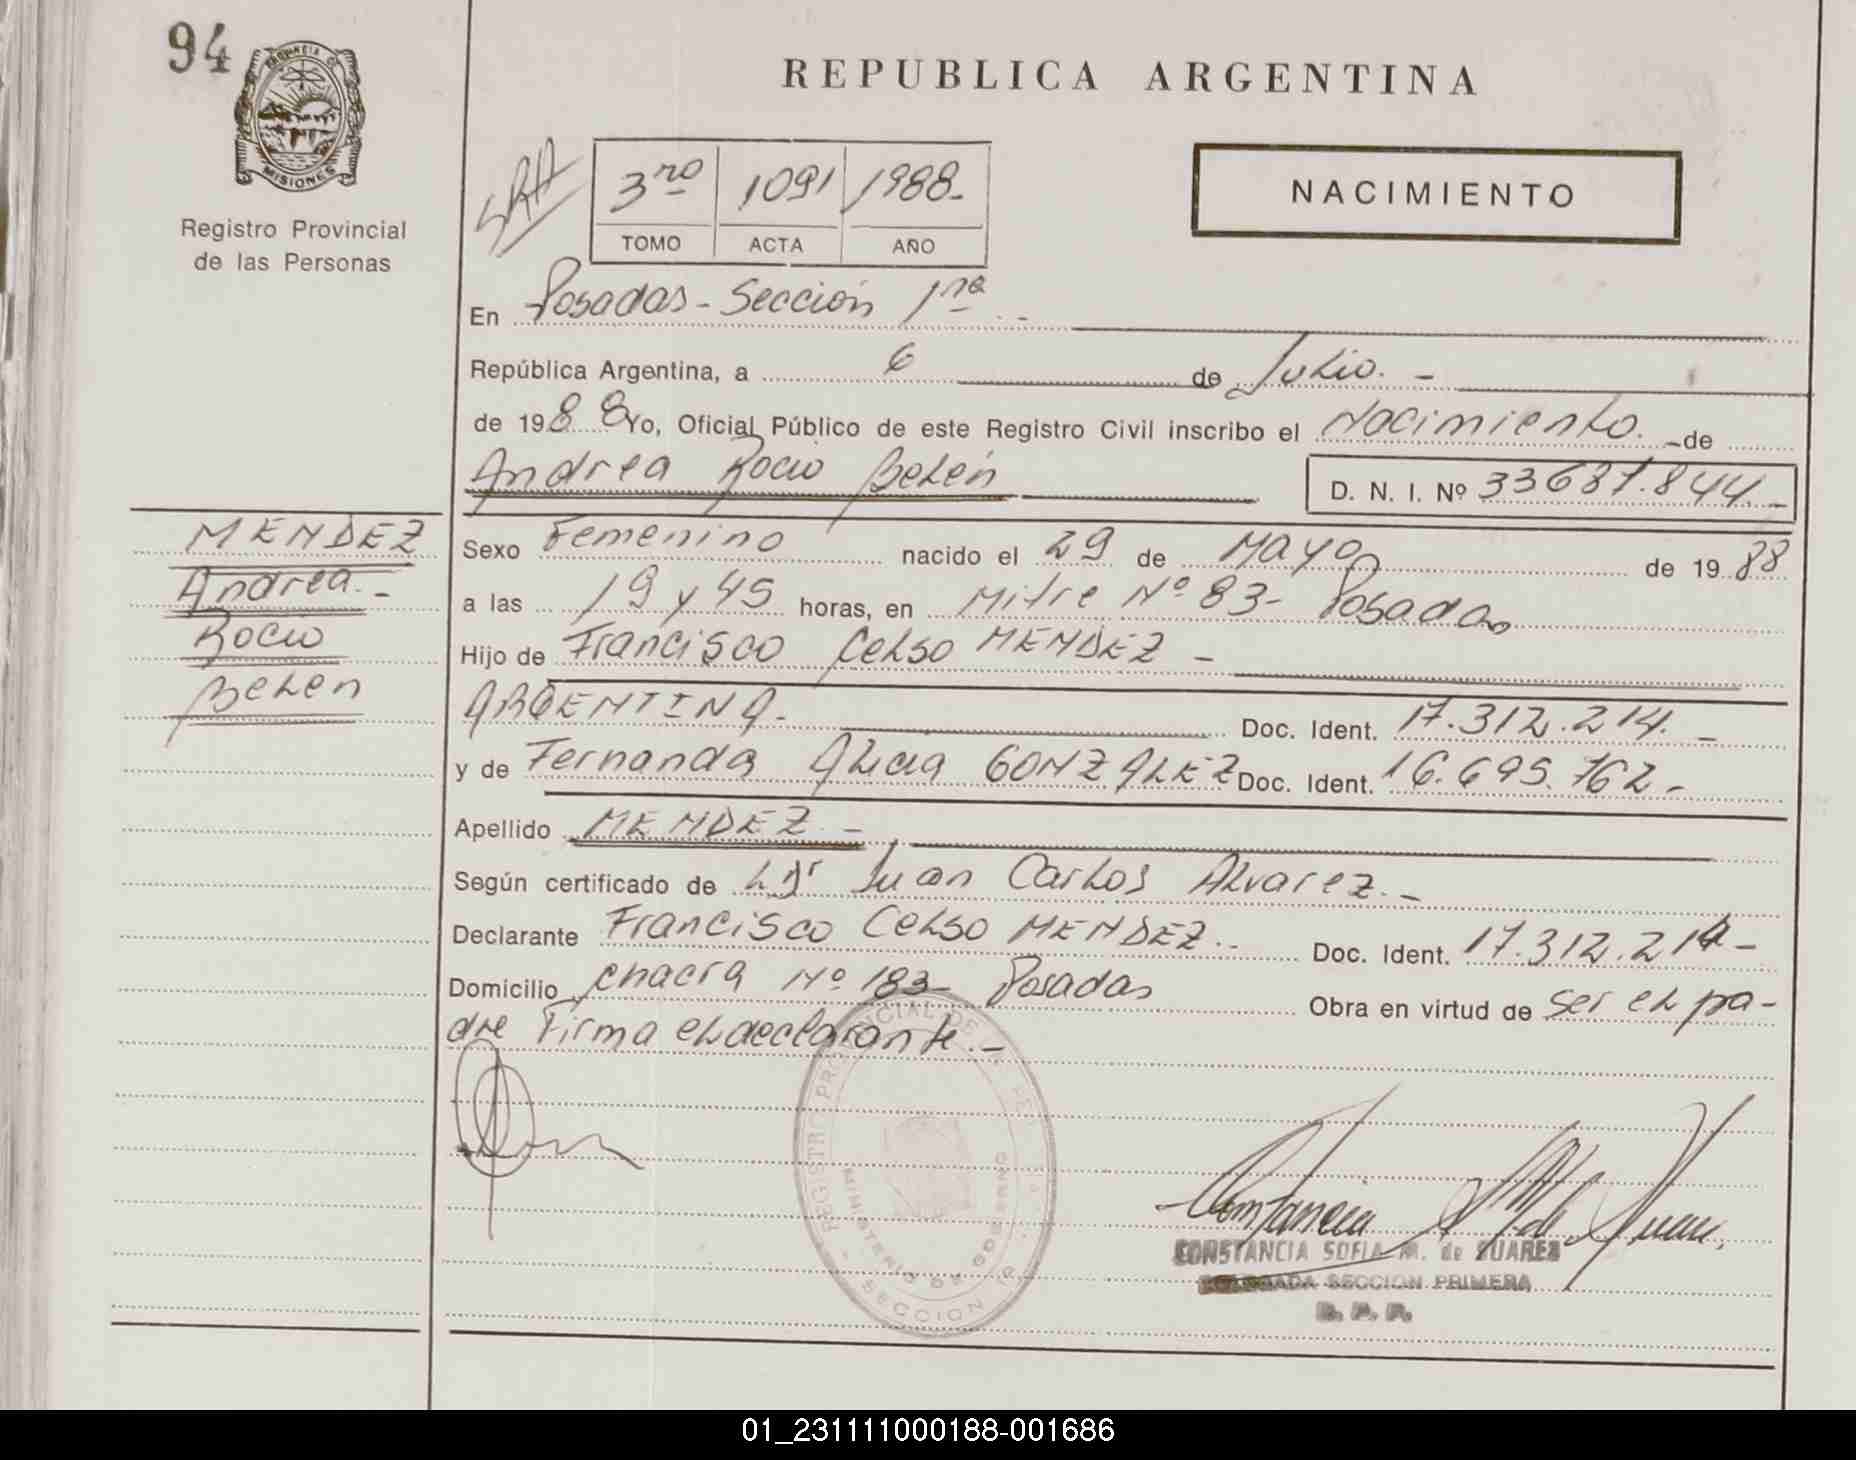 94
PROVINCIA
MISIONES
Registro Provincial
de las Personas
REPUBLICA ARGENTINA
3ro 1091 1988-
TOMO ACTA AÑO
NACIMIENTO
En Posadas - Sección 1ra -
República Argentina, a 6 de Julio. -
de 1988 Yo, Oficial Público de este Registro Civil inscribo el Nacimiento. - de
Andrea Rocio Belén D. N. I. Nº 33687.844.-
MENDEZ
Andrea.-
Rocio
Belen
Sexo Femenino nacido el 29 de Mayo de 1988
a las 19 y 45 horas, en Mitre Nº 83- Posadas
Hijo de Francisco Celso MENDEZ -
ARGENTINA.- Doc. Ident. 17.312.214. -
y de Fernanda Alicia GONZALEZ Doc. Ident. 16.695.762.-
Apellido MENDEZ.-
Según certificado de Juan Carlos Alvarez.-
Declarante Francisco Celso MENDEZ.- Doc. Ident. 17.312.214-
Domicilio chacra Nº 183- Posadas Obra en virtud de ser el pa-
dre Firma el declarante.-
REGISTRO PROVINCIAL DE
MINISTERIO DE GOBIERNO
SECCION
CONSTANCIA SOFIA M. de SUAREZ
DELEGADA SECCION PRIMERA
R. P. P.
01_231111000188-001686